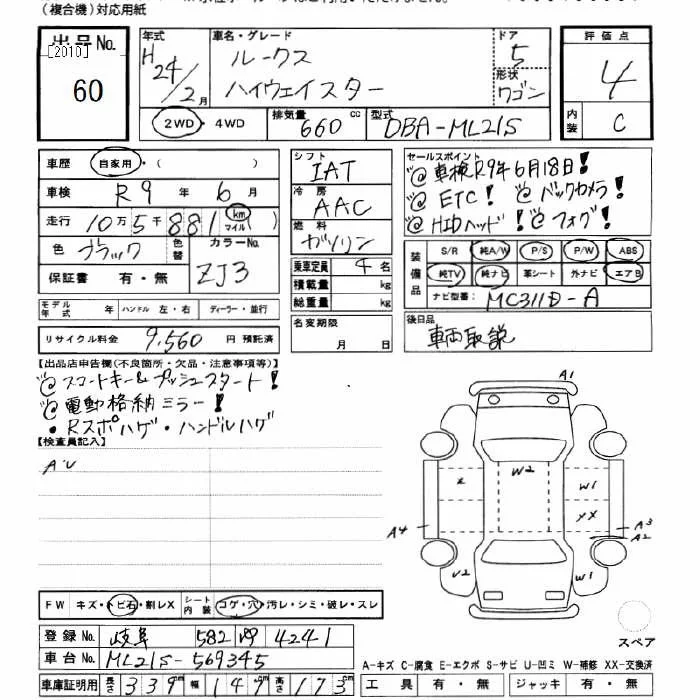 (複合機)対応用紙
出品No.
[2010]
60
年式 H24/2月
車名・グレード ルークス ハイウェイスター
ドア 5
形状 ワゴン
2WD・4WD
排気量 660 cc
型式 DBA-ML21S
評価点 4
内装 C
車歴 自家用・( )
車検 R9年6月
走行 10万5千881 km マイル )
色 ブラック
色替
カラーNo. ZJ3
保証書 有・無
モデル年式 年 ハンドル 左・右 ディーラー・並行
リサイクル料金 9,560 円 預託済
シフト IAT
冷房 AAC
燃料 ガソリン
乗車定員 4名
積載量 kg
総重量 kg
名変期限 月 日
セールスポイント
@車検R9年6月18日!
@ETC! @バックカメラ!
@HIDヘッド! @フォグ!
装備品 S/R 純A/W P/S P/W ABS
純TV 純ナビ 革シート 外ナビ エアB
ナビ型番: MC311D-A
後日品
車両取説
【出品店申告欄(不良箇所・欠品・注意事項等)】
@スマートキー&プッシュスタート!
@電動格納ミラー!
・Rスポハゲ・ハンドルハゲ
【検査員記入】
A'U
FW キズ・トビ石・割レX シート内装 コゲ・穴・汚レ・シミ・破レ・スレ
登録No. 岐阜 582 4241
車台No. ML21S-569345
車庫証明用 長さ 339cm 幅 147cm 高さ 173cm
A1
W2
W1
XX
A4
A3
A2
U2
W1
スペア
A-キズ C-腐食 E-エクボ S-サビ U-凹ミ W-補修 XX-交換済
工具 有・無 ジャッキ 有・無